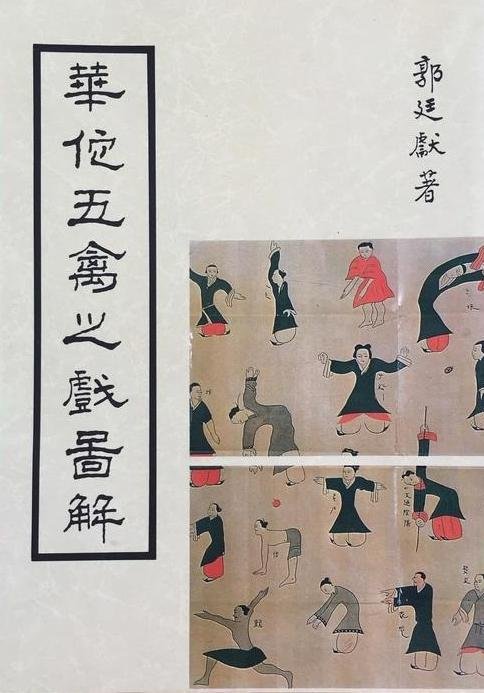 華佗五禽之戲圖解
郭廷獻著